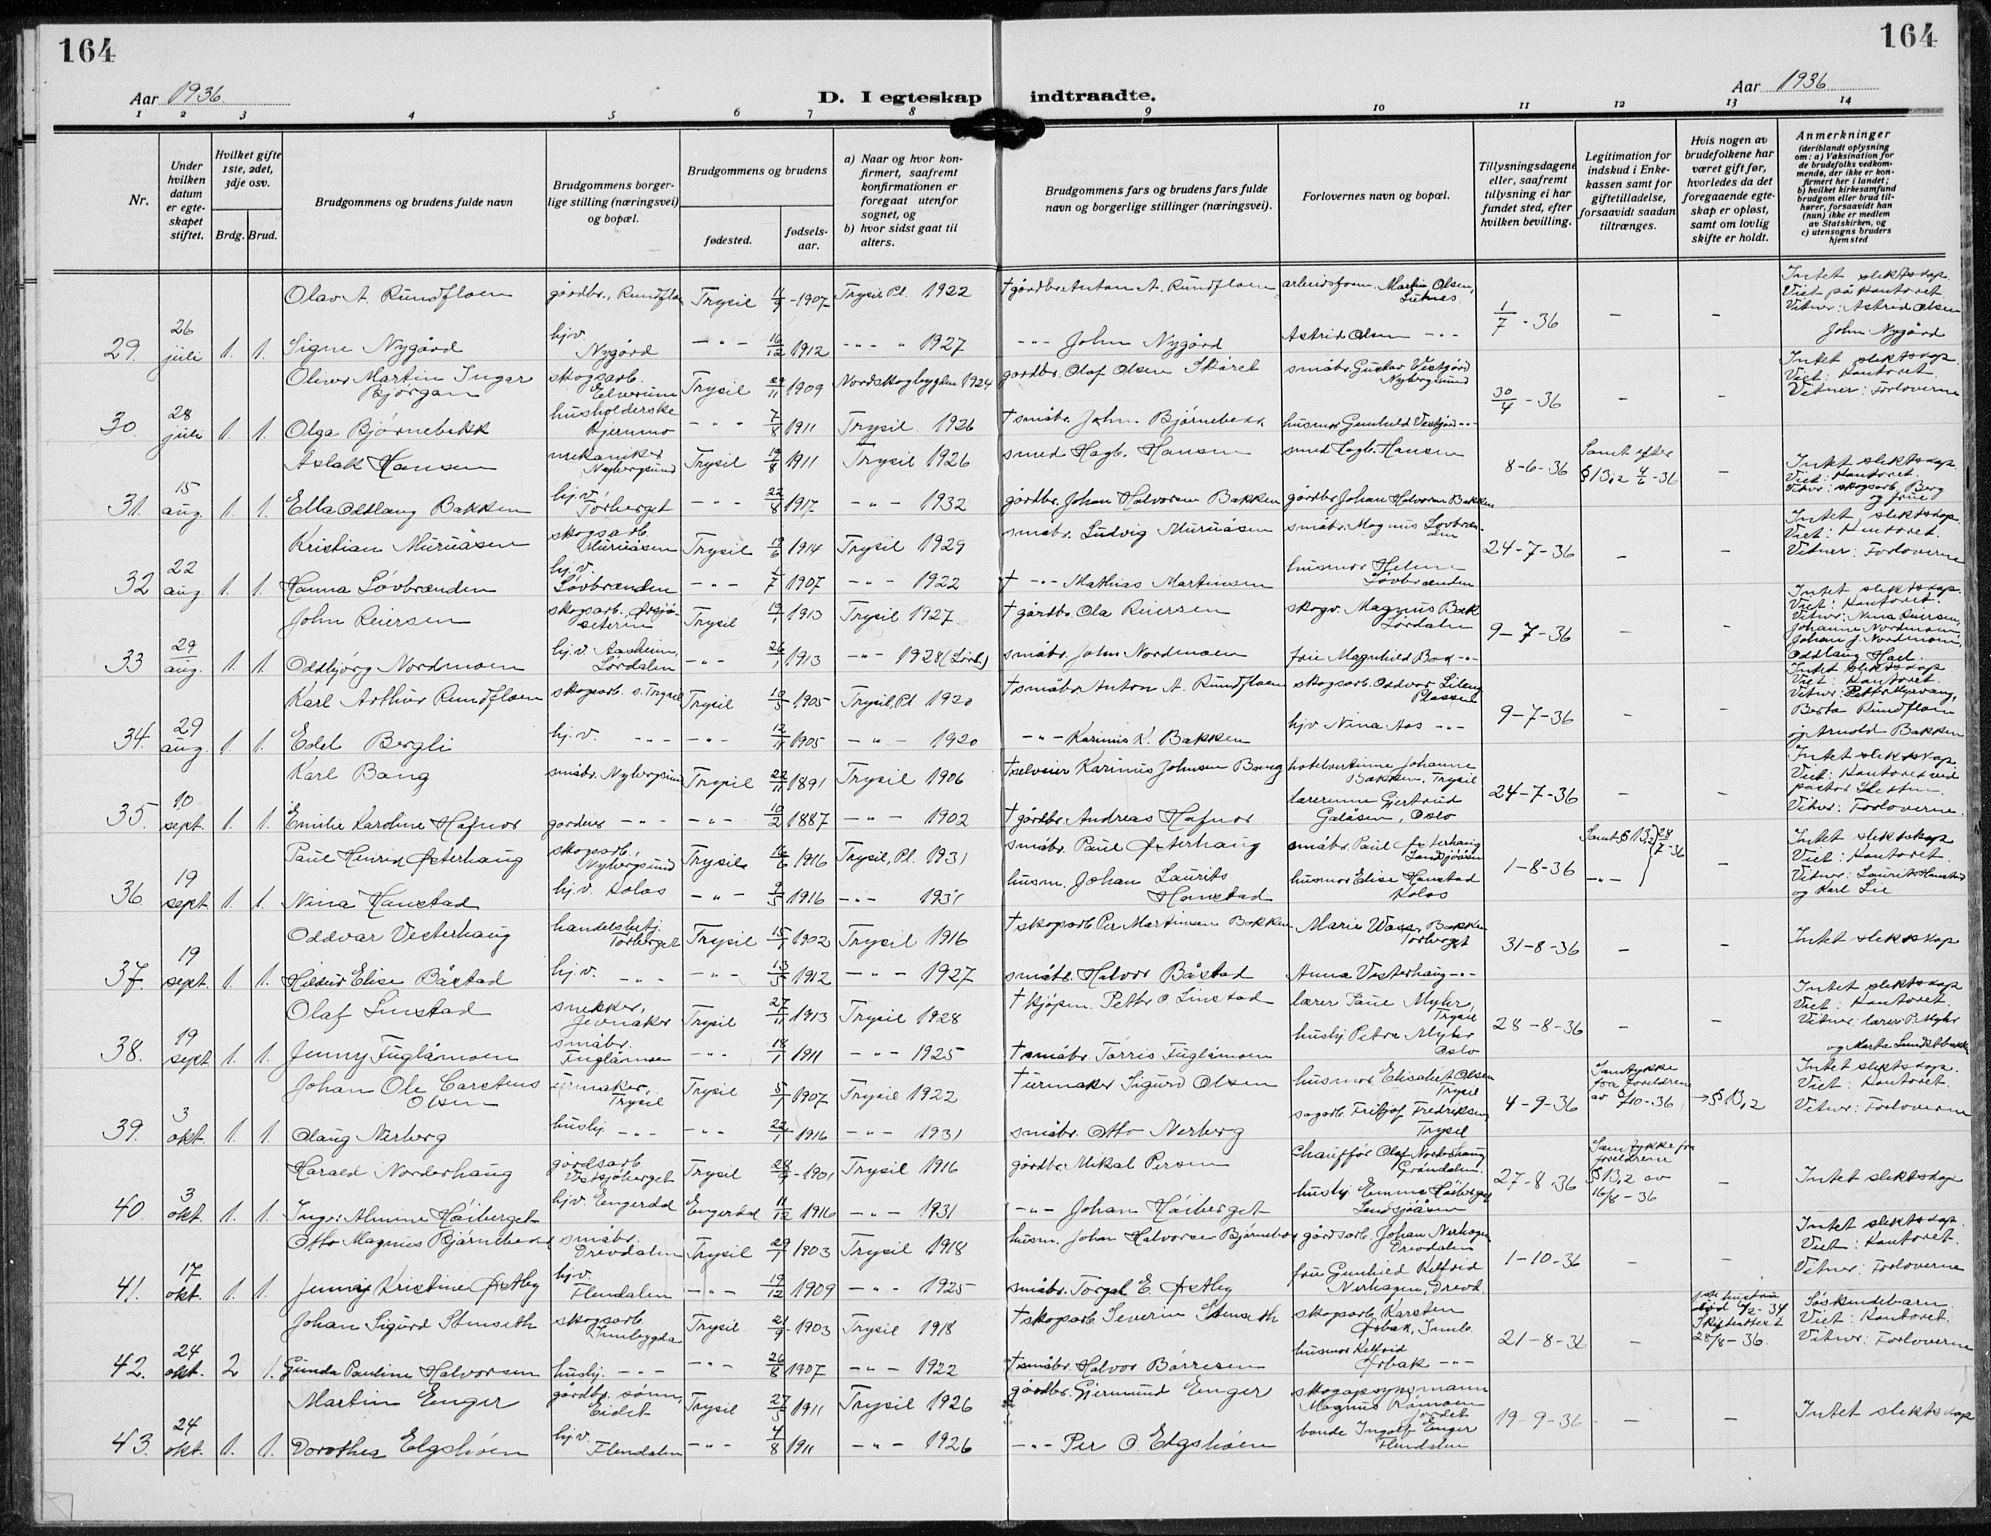 164
164
Aar 1936.
D. I egteskap indtraadte.
Aar 1936
1 2 3 4 5 6 7 8 9 10 11 12 13 14
Nr.
Under hvilken datum er egteskapet stiftet.
Hvilket gifte 1ste, 2det, 3dje osv.
Brdg. Brud.
Brudgommens og brudens fulde navn
Brudgommens borgerlige stilling (næringsvei) og bopæl.
Brudgommens og brudens
fødested.
fødselsaar.
a) Naar og hvor konfirmert, saafremt konfirmationen er foregaat utenfor sognet, og
b) hvor sidst gaat til alters.
Brudgommens fars og brudens fars fulde navn og borgerlige stillinger (næringsvei).
Forlovernes navn og bopæl.
Tillysningsdagene eller, saafremt tillysning ei har fundet sted, efter hvilken bevilling.
Legitimation for indskud i Enkekassen samt for giftetilladelse, forsaavidt saadan tiltrænges.
Hvis nogen av brudefolkene har været gift før, hvorledes da det foregaaende egteskap er opløst, samt om lovlig skifte er holdt.
Anmerkninger
(deriblandt oplysning om: a) Vaksination for de brudefolks vedkommende, der ikke er konfirmert her i landet;
b) hvilket kirkesamfund brudgom eller brud tilhører, forsaavidt han (hun) ikke er medlem av Statskirken, og
c) utensogns bruders hjemsted
Olav A. Rundfloen gårdbr., Rundflo Trysil 11/9 - 1907 Trysil Pl. 1922 † gårdbr. Anton A. Rundfloen arbeidsform. Martin Olsen, 1/7 - 36 — — Intet slektskap. Viet på kontoret. Vitner: Astrid Olsen
29. 26 juli 1. 1. Signe Nygård hjv. Nygård - " - 16/12 1912 - " - 1927 - " - John Nygård Astrid Olsen - " - John Nygård
Oliver Martin Inger Bjørgan skogsarb. Elverum Trysil 29/11 1909 Nordskogbygden 1924 gårdbr. Olaf Olsen Skåret småbr. Gustav Vestgård Nybergsund 30/4 - 36 - - Intet slektskap. Viet: Kontoret. Vitner: Forloverne
30. 28 juli 1. 1. Olga Bjørnebekk husholderske - " - 7/8 1911 Trysil 1926 † småbr. John Bjørnebekk husmor Gunhild Vestgård - " -
Aslak Hansen mekaniker Nybergsund Trysil 19/8 1911 Trysil 1926 smed Hagb. Hansen smed Hagb. Hansen 8-6-36 Samt. efter § 13,2 - Intet slektskap. Viet: Kontoret. Vitner: skogsarb. Berg og frue
31. 15 aug. 1. 1. Ella Oddlaug Bakken hj.v. Torberget - " - 22/8 1917 - " - 1932 gårdbr. Johan Halvorsen Bakken gårdbr. Johan Halvorsen Bakken
Kristian Muruåsen skogsarb. Muruåsen Trysil 19/6 1914 Trysil 1929 småbr. Ludvig Muruåsen småbr. Magnus Løvbrænden 24-7-36 - - Intet slektskap Viet: Kontoret. Vitner: Forloverne
32 22 aug. 1. 1. Hanna Løvbrænden hj.v. Løvbrænden - " - 1907 - " - 1922 † - " - Mathias Martinsen husmor Helene Løvbrænden
John Reiersen skogsarb. Trysil 19/1 1913 Trysil 1927 † gårdbr. Ola Reiersen skogv. Magnus Bak Lørdalen 9-7-36 - - Intet slektskap. Viet: Kontoret. Vitner: Nina Reiersen, Johanne Nordmoen, Johan J. Nordmoen,
33 29 aug. 1. 1. Oddbjørg Nordmoen hj.v. Lørdalen - " - 26/1 1913 - " - 1928 småbr. John Nordmoen frue Magnhild Bak - " -
Karl Arthur Rundfloen skogsarb. s. Trysil Trysil 10/5 1905 Trysil, Pl. 1920 † småbr. Anton A. Rundfloen skogsarb. Oddvar Lileng Plassen 9-7-36 - - Intet slektskap Viet: Kontoret. Berta Rundfloen og Arnold Bakken
34. 29 aug. 1. 1. Edel Bergli hj.v. - " - - " - 12/11 1905 - " - 1920 - " - Karinus K. Bakken hjv. Nina Aas - " -
Karl Bang småbr. Nybergsund Trysil 22/11 1891 Trysil 1906 † selveier Karinus Johnsen Bang hotelvertinne Johanne Bakken, Trysil 24-7-36 - - Intet slektskap. Viet: Kontoret ved pastor Vitner: Forloverne.
35. 10 sept. 1. 1. Emilie Karoline Hafnor - " - - " - 10/2 1887 - " - 1902 † gårdbr. Andreas Hafnor lærerinne Gjertrud Galåsen, Oslo
Paul Henrik Østerhaug skogsarb., Nybergsund Trysil 16/6 1916 Trysil, Pl. 1931 småbr. Paul Østerhaug småbr. Paul Østerhaug 1-8-36 Samt. § 13,2 28/7-36 - Intet slektskap Viet: Kontoret. Vitner: Laurits Hanstad og Karl Lie
36. 19 sept. 1. 1. Nina Hanstad hj.v. Kolos - " - 9/5 1916 - " - 1931 husm. Johan Laurits Hanstad husmor Elise Hanstad Kolos - " -
Oddvar Vesterhaug handelsbetj. Torberget Trysil 15/7 1902 Trysil 1916 † skogsarb. Per Martinsen Bakken Marie Bakken Torberget 31-8-36 - - Intet slektskap
37. 19 sept. 1. 1. Hildur Elise Båstad hj.v. - " - - " - 13/5 1912 - " - 1927 småbr. Halvor Båstad Anna Vesterhaug - " -
Olaf Linstad snekker, Jevnaker Trysil 27/11 1913 Trysil 1928 † kjøpm. Petter O. Linstad lærer Paul Myhr, Trysil 28-8-36 - - Intet slektskap Viet: Kontoret. Vitner: lærer P. Myhr
38. 19 sept 1. 1. Jenny Fuglåmoen småbr. Fuglåmoen - " - 18/1 1911 - " - 1925 † småbr. Tørris Fuglåmoen husbj Petra Myhr Oslo
Johan Ole Carstens Olsen urmaker, Trysil Trysil 5/7 1907 Trysil 1922 † urmaker Sigurd Olsen husmor Elisabet Olsen Trysil 4-9-36 Samtykke fra foreldrene av 3/10-36 → § 13,2 Intet slektskap. Viet: Kontoret. Vitner: Forloverne
39. 3 okt. 1. 1. Olaug Nerberg husbj. - " - - " - 22/1 1916 - " - 1931 småbr. Otto Nerberg sagarb. Fritjof Fredriksen, Trysil
Harald Norderhaug gårdsarb. Vestsjøberget Trysil 28/9 - 1901 Trysil 1916 gårdbr. Mikal Persen chaufför Olaf Norderhaug Grøndalen. 27-8-36 Samtykke fra foreldrene § 13,2 av 16/8-36 - Intet slektskap
40. 3 okt. 1. 1. Inger Almine Høiberget hjv. Engerdal Engerdal 11/12 1916 - " - 1931 - " - Johan Høiberget husbj Emma Høiberget
Otto Magnus Bjørnebekk småbr. Drevdalen Trysil 29/7 1903 Trysil 1918 husm. Johan Halvorsen Bjørnebekk gårdsarb. Johan Nerhagen Drevdalen 1-10-36 - - Intet slektskap. Viet: Kontoret. Vitner: Forloverne
41. 17 okt. 1. 1. Jenny Kristine Østby hjv. Flendalen - " - 19/12 1909 - " - 1925 småbr. Torgal E. Østby frue Gunhild Kelfrid Nerhagen, Drevd.
Johan Sigurd Stenseth skogsarb. Innbygda Trysil 21/9 - 1903 Trysil 1918 † skogsarb. Severin Stenseth skogsarb. Karsten Ørbak, Innb. 21-8-36 - 1ste hustru død 4/2-34 Skifteattest 28/8-36. Søskendebarn. Viet: Kontoret. Vitner: Forloverne
42. 24 okt. 2 1. Gunda Pauline Halvorsen husbj. - " - - " - 26/8 1907 - " - 1922 † småbr. Halvor Børresen husmor Kelfrid Ørbak - " -
Martin Enger gårdbr. sønn, Eidet Trysil 27/5 1911 Trysil 1926 gårdbr. Gjermund Enger skogopsynsmann Magnus 19-9-36 - - Intet slektskap
43. 24 okt. 1. 1. Dorothea Elgshøen hjv. Flendalen - " - 4/8 1911 - " - 1926 - " - Per O. Elgshøen bonde Ingolf Enger Flendalen